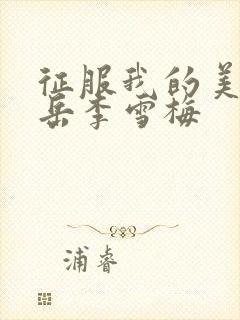 征服我的美
岳李雪梅
浦睿